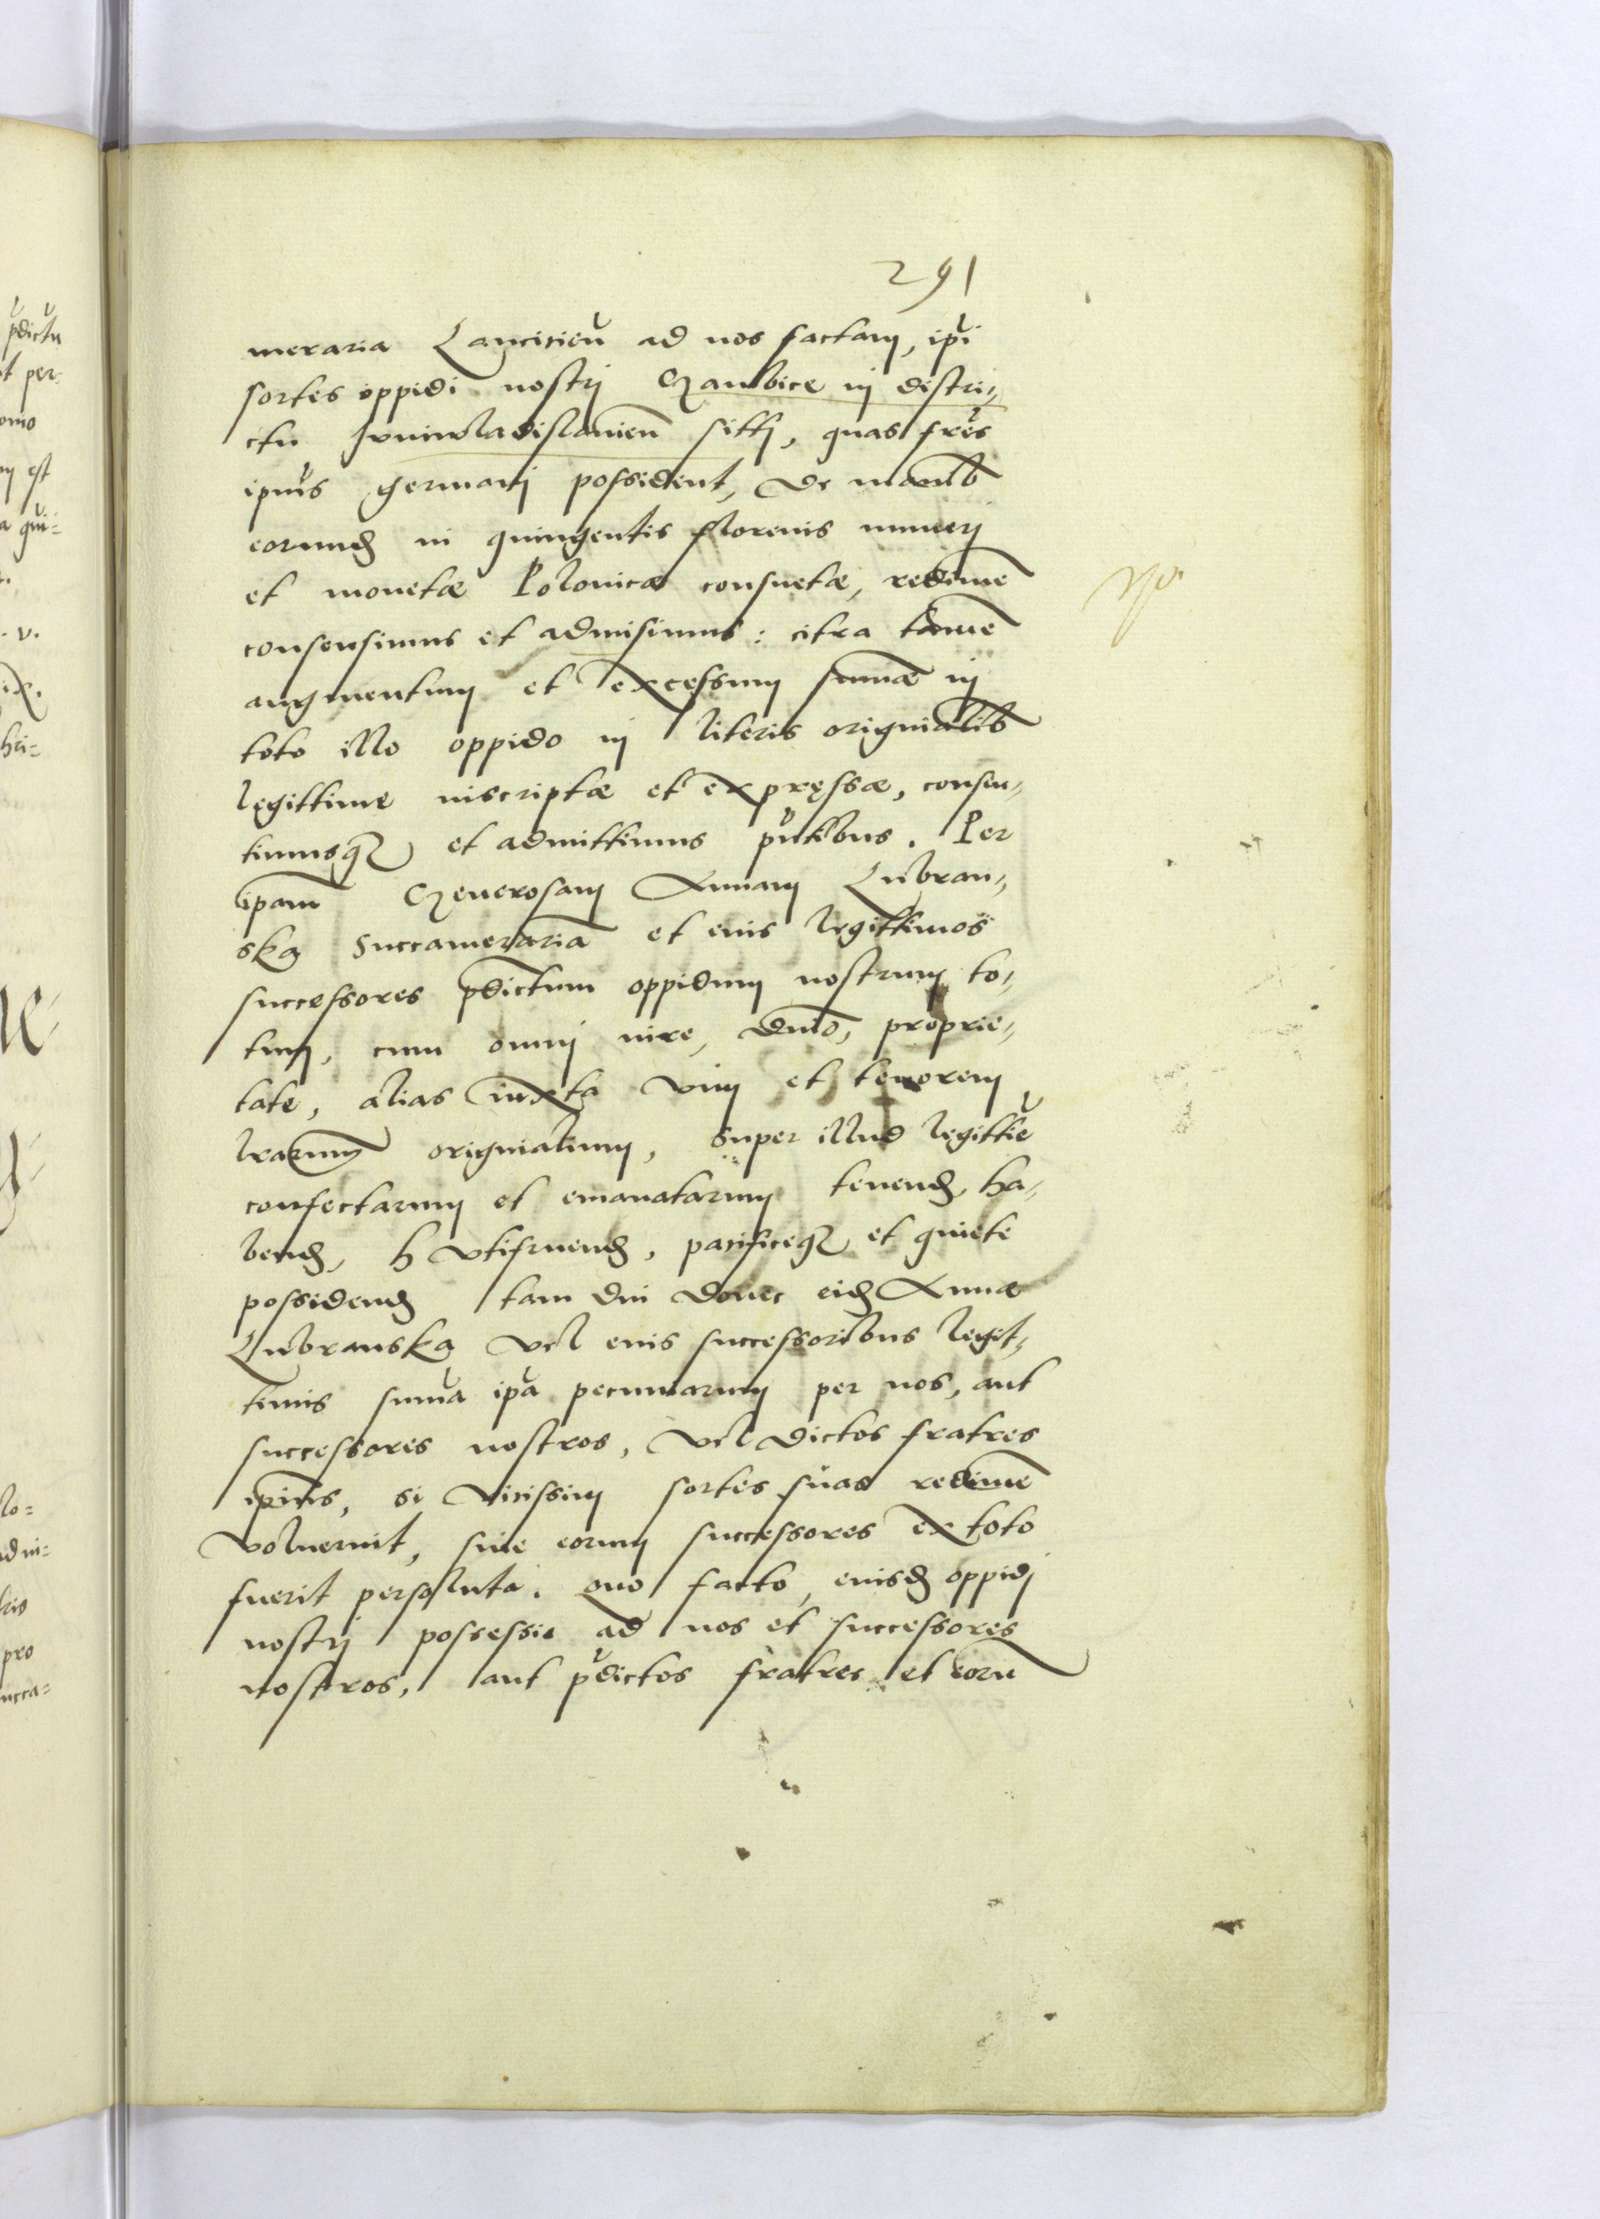 291
meraria Lancicien̄ ad nos factam, ipi
sortes oppidi nostri Gambice in distri-
ctu Iuniwladislauien̄ sitti, quas fr̄es
ipius germani possident, de manib
eorund in quingentis florenis numeri
et monetæ Polonicæ consuetæ, redimē
consensimus et admisimus: citra tamē
augmentum et excessum sum̄æ in
toto illo oppido in literis originalib
legittime inscriptæ et expressæ, consen-
timusq et admittimus pn̄tibus. Per
ipam̄ Generosam Annam Lubran-
ska Succamerariā et eius legittimos
successores p̄dictum oppidum nostrum to-
tum, cum omni iure, dn̄io, proprie-
tate, alias iuxta vim et tenorem
lrarum originalium, super illud legittīe
confectarum et emanatarum tenend, ha-
bend, h utifruend, pacificeq et quiete
possidend tam diu donec eid Annæ
Lubranska vel eius successoribus legit-
timis summa ipa pecuniarum per nos, aut
successores nostros, vel dictos fratres
ipius, si vicissim sortes suas redimē
voluerint, siue eorum successores ex toto
fuerit persoluta. Quo facto, eiusd oppidi
nostri possessio ad nos et successores
nostros, aut p̄dictos fratres et eorū